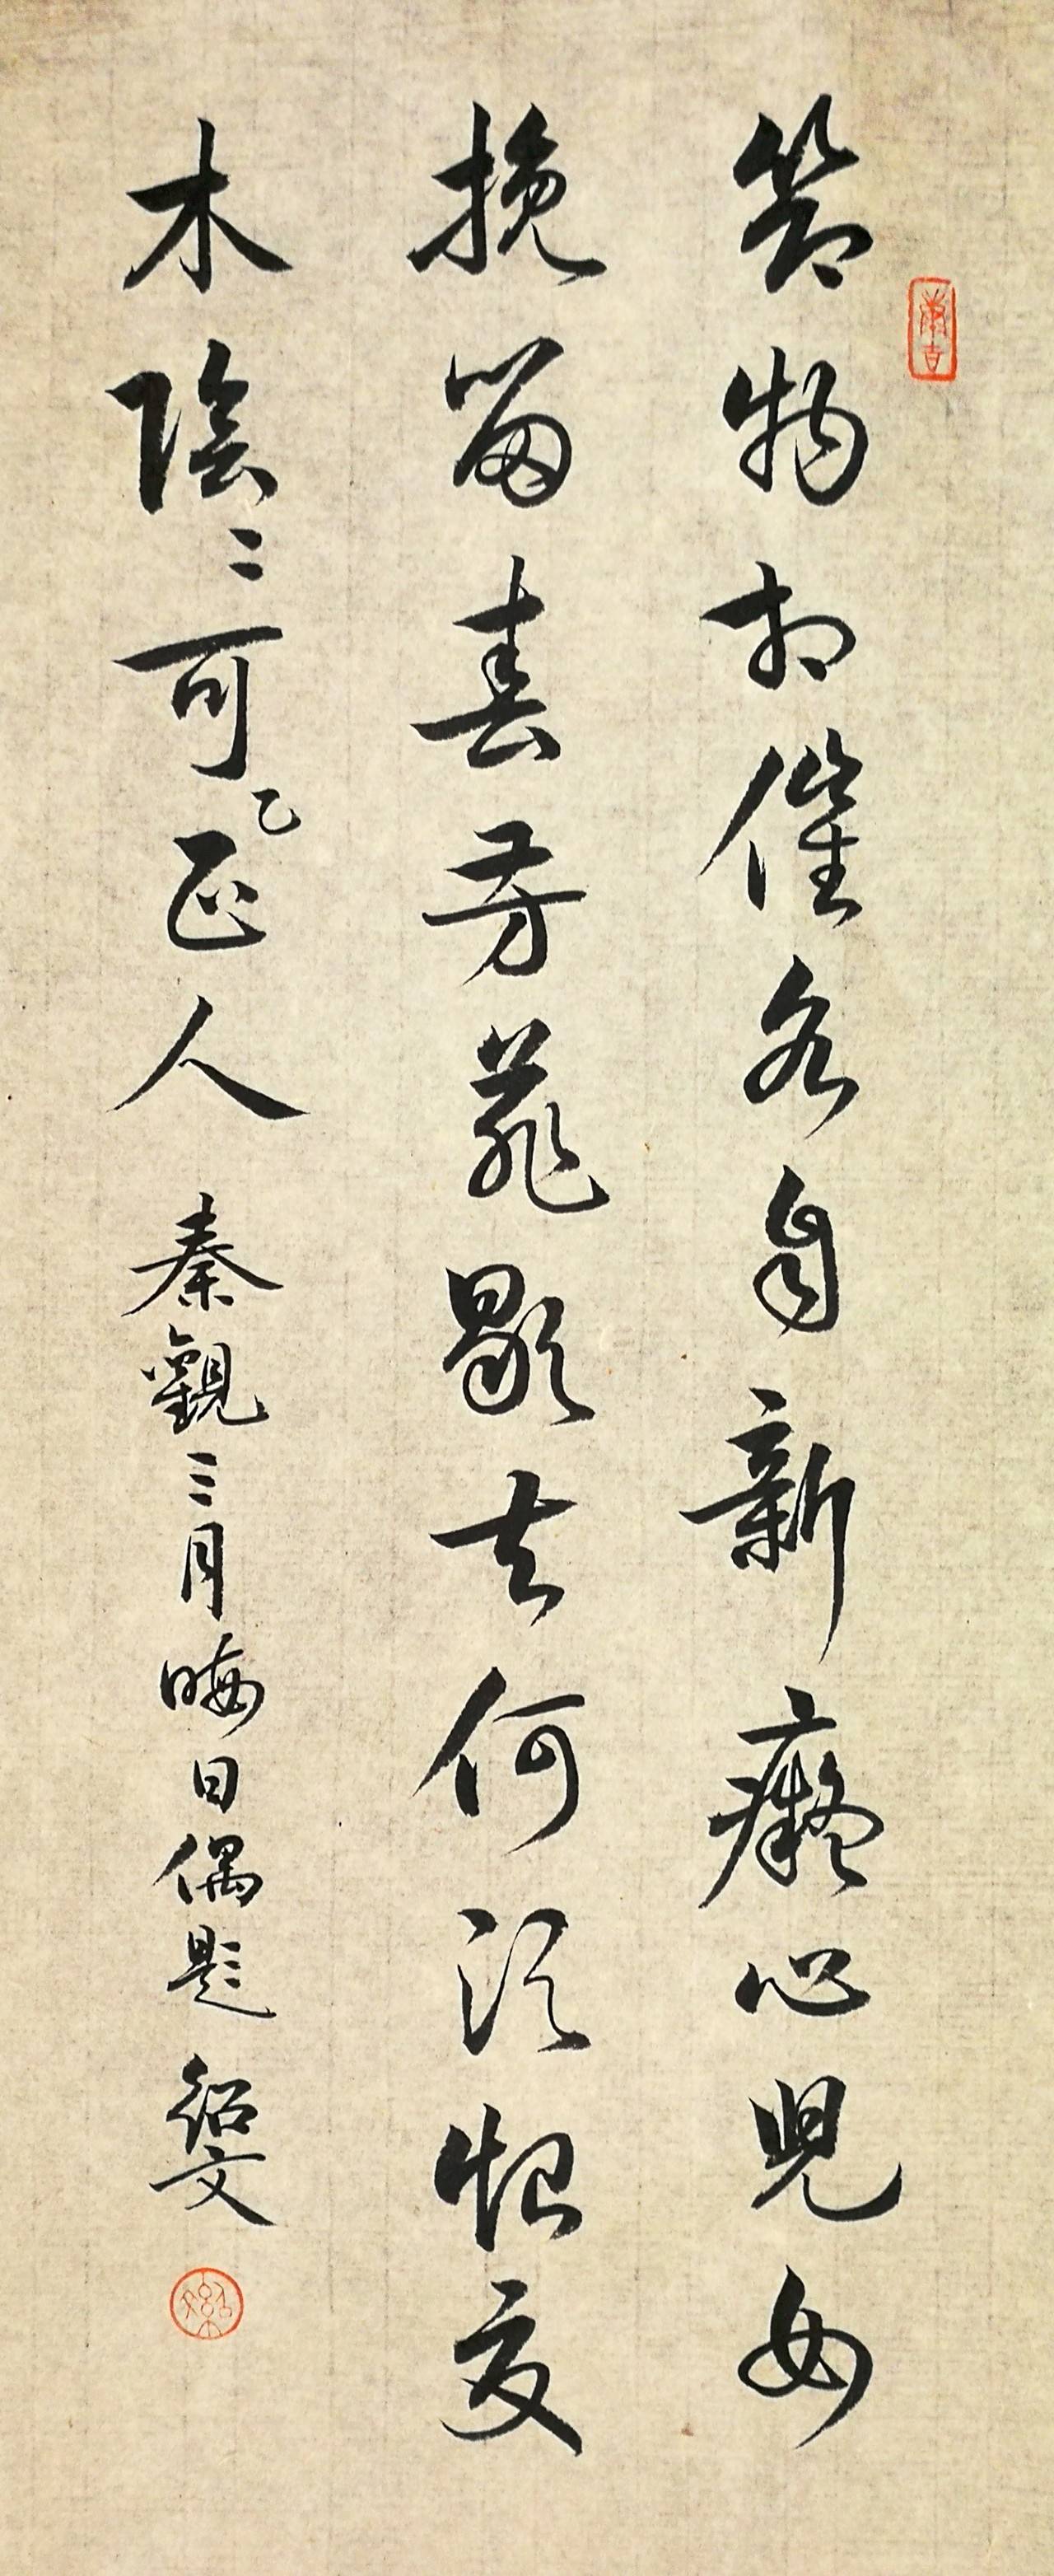 節物相催各自新癡心兒女
挽留春芳菲歇去何須恨夏
木陰〻可乙正人 秦觀三月晦日偶題 紹文